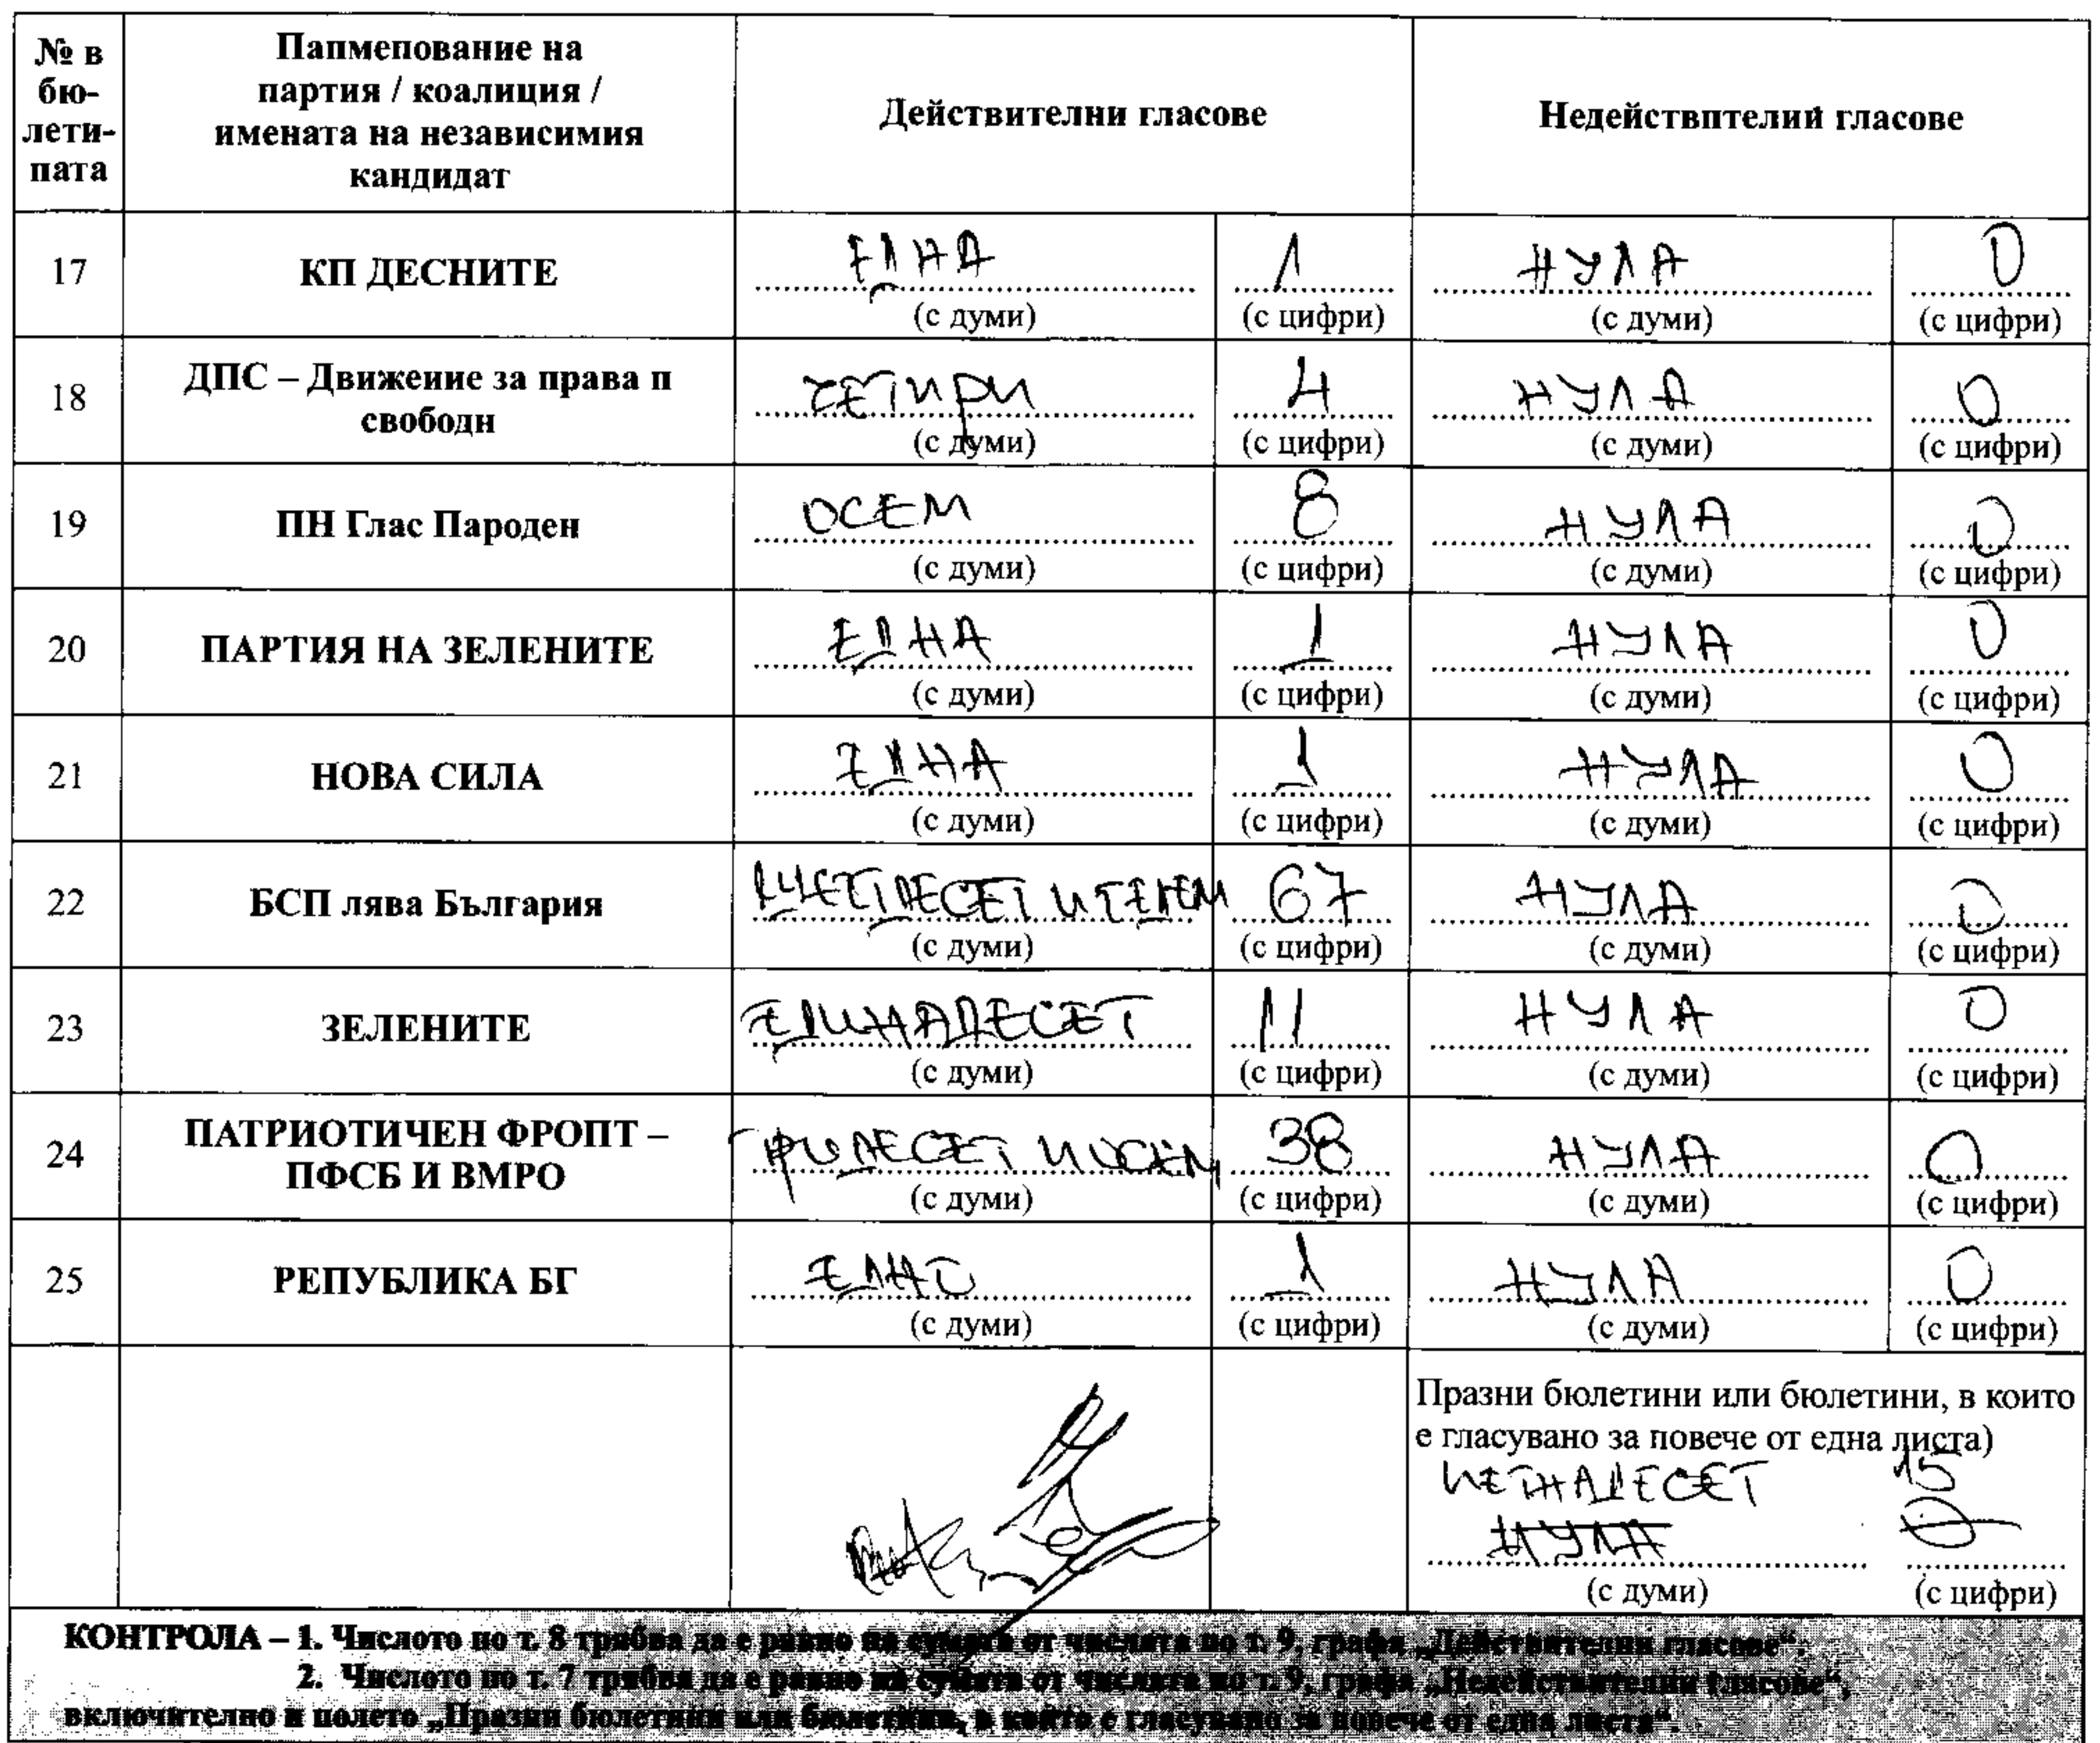 № в бю-лети-пата
Папмепование на партия / коалиция / имената на независимия кандидат
Действителни гласове
Недействптелий гласове
17 КП ДЕСНИТЕ ЕДНА 1 НУЛА 0
(с думи) (с цифри) (с думи) (с цифри)
18 ДПС – Движеиие за права п свободн ЧЕТИРИ 4 НУЛА 0
(с думи) (с цифри) (с думи) (с цифри)
19 ПН Глас Пароден ОСЕМ 8 НУЛА 0
(с думи) (с цифри) (с думи) (с цифри)
20 ПАРТИЯ НА ЗЕЛЕНИТЕ ЕДНА 1 НУЛА 0
(с думи) (с цифри) (с думи) (с цифри)
21 НОВА СИЛА ЕДНА 1 НУЛА 0
(с думи) (с цифри) (с думи) (с цифри)
22 БСП лява България ШЕСТДЕСЕТ И СЕДЕМ 67 НУЛА 0
(с думи) (с цифри) (с думи) (с цифри)
23 ЗЕЛЕНИТЕ ЕДИНАДЕСЕТ 11 НУЛА 0
(с думи) (с цифри) (с думи) (с цифри)
24 ПАТРИОТИЧЕН ФРОПТ – ПФСБ И ВМРО ТРИДЕСЕТ И ОСЕМ 38 НУЛА 0
(с думи) (с цифри) (с думи) (с цифри)
25 РЕПУБЛИКА БГ ЕДНО 1 НУЛА 0
(с думи) (с цифри) (с думи) (с цифри)
Празни бюлетини или бюлетини, в които
е гласувано за повече от една листа)
ПЕТНАДЕСЕТ 15
НУЛА 0
(с думи) (с цифри)
КОНТРОЛА – 1. Числото по т. 8 трябва да е равно на сумата от числата по т. 9, графа „Действителни гласове“.
2. Числото по т. 7 трябва да е равно на сумата от числата по т. 9, графа „Недействителни гласове“,
включително и полето „Празни бюлетини или бюлетини, в които е гласувано за повече от една листа“.